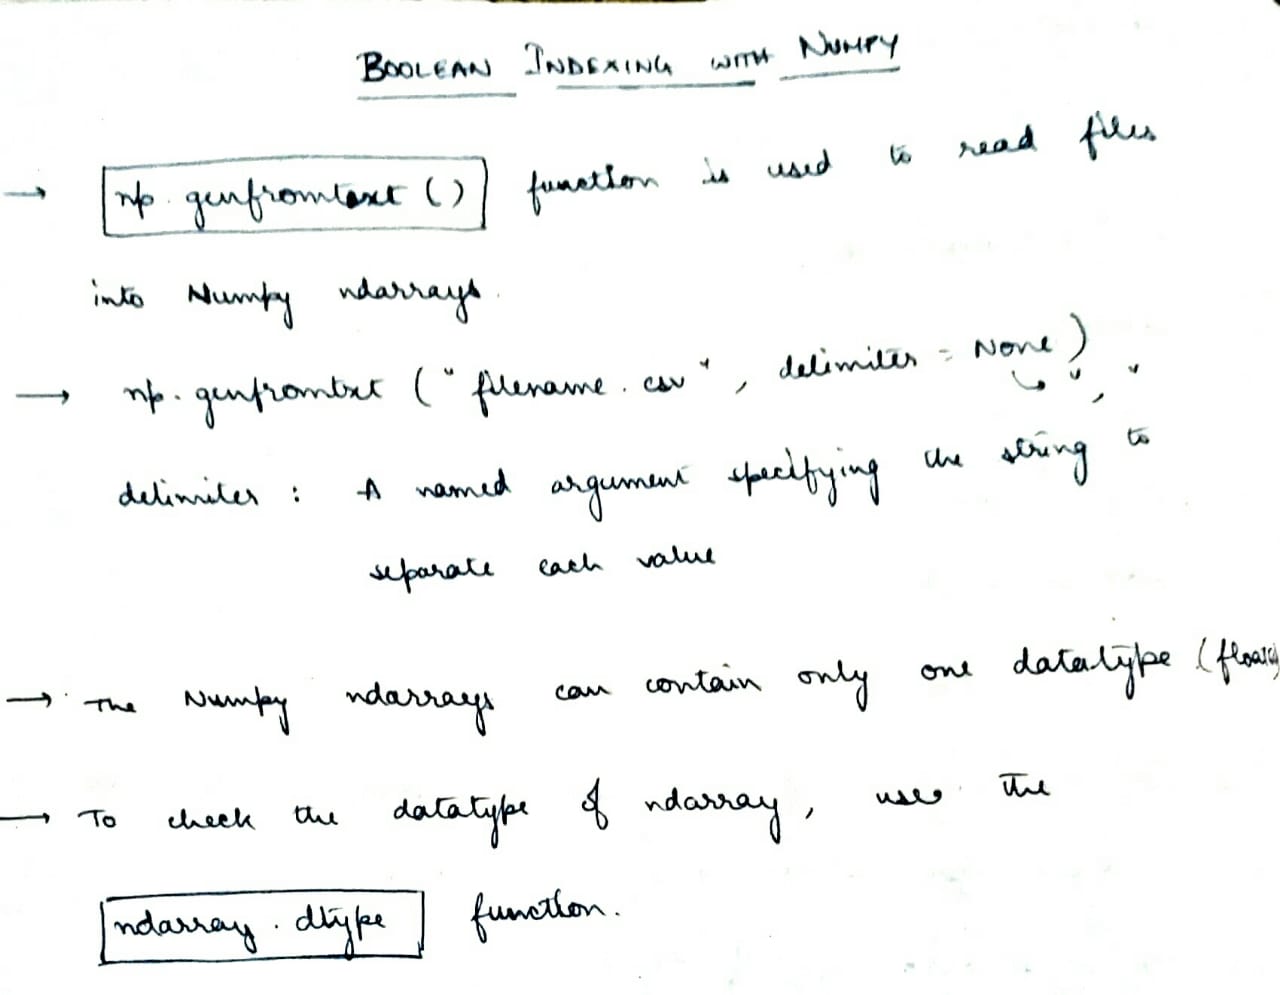 BOOLEAN INDEXING WITH NUMPY
→ np.genfromtext() function is used to read files
into Numpy ndarrays.
→ np.genfromtxt ("filename.csv", delimiter = None)
↳ ","
delimiter : A named argument specifying the string to
separate each value
→ The Numpy ndarrays can contain only one datatype (float)
→ To check the datatype of ndarray, use the
ndarray.dtype function.